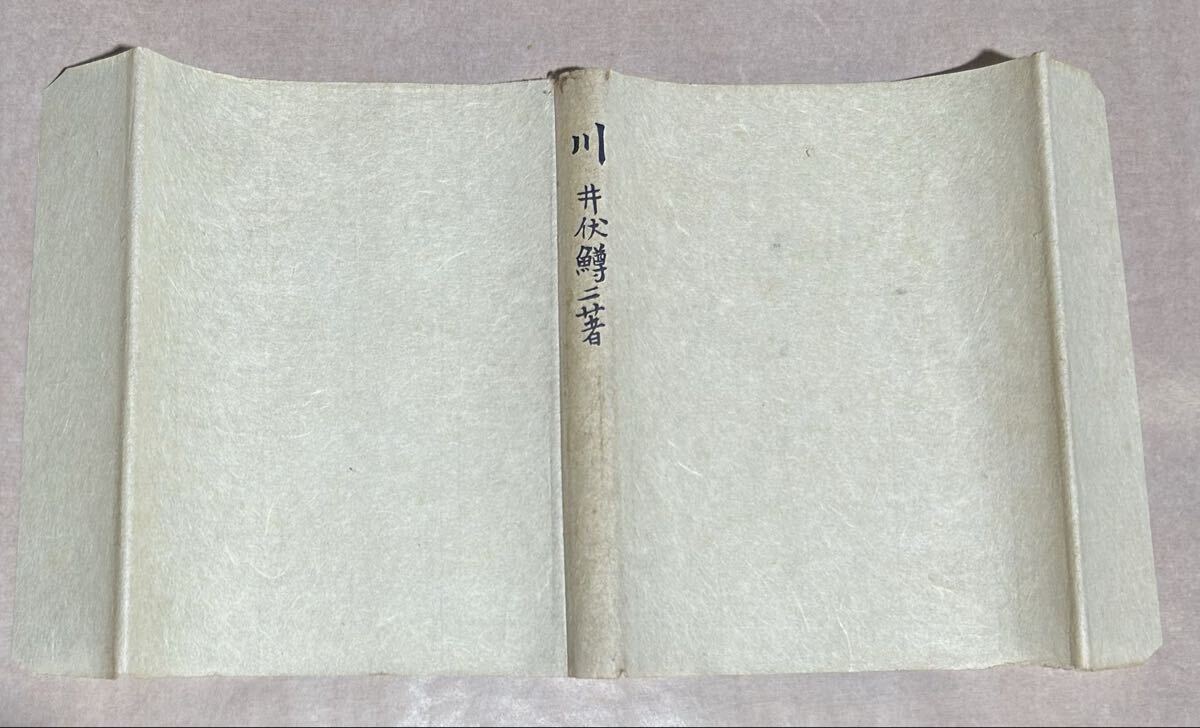 川 井伏鱒二著